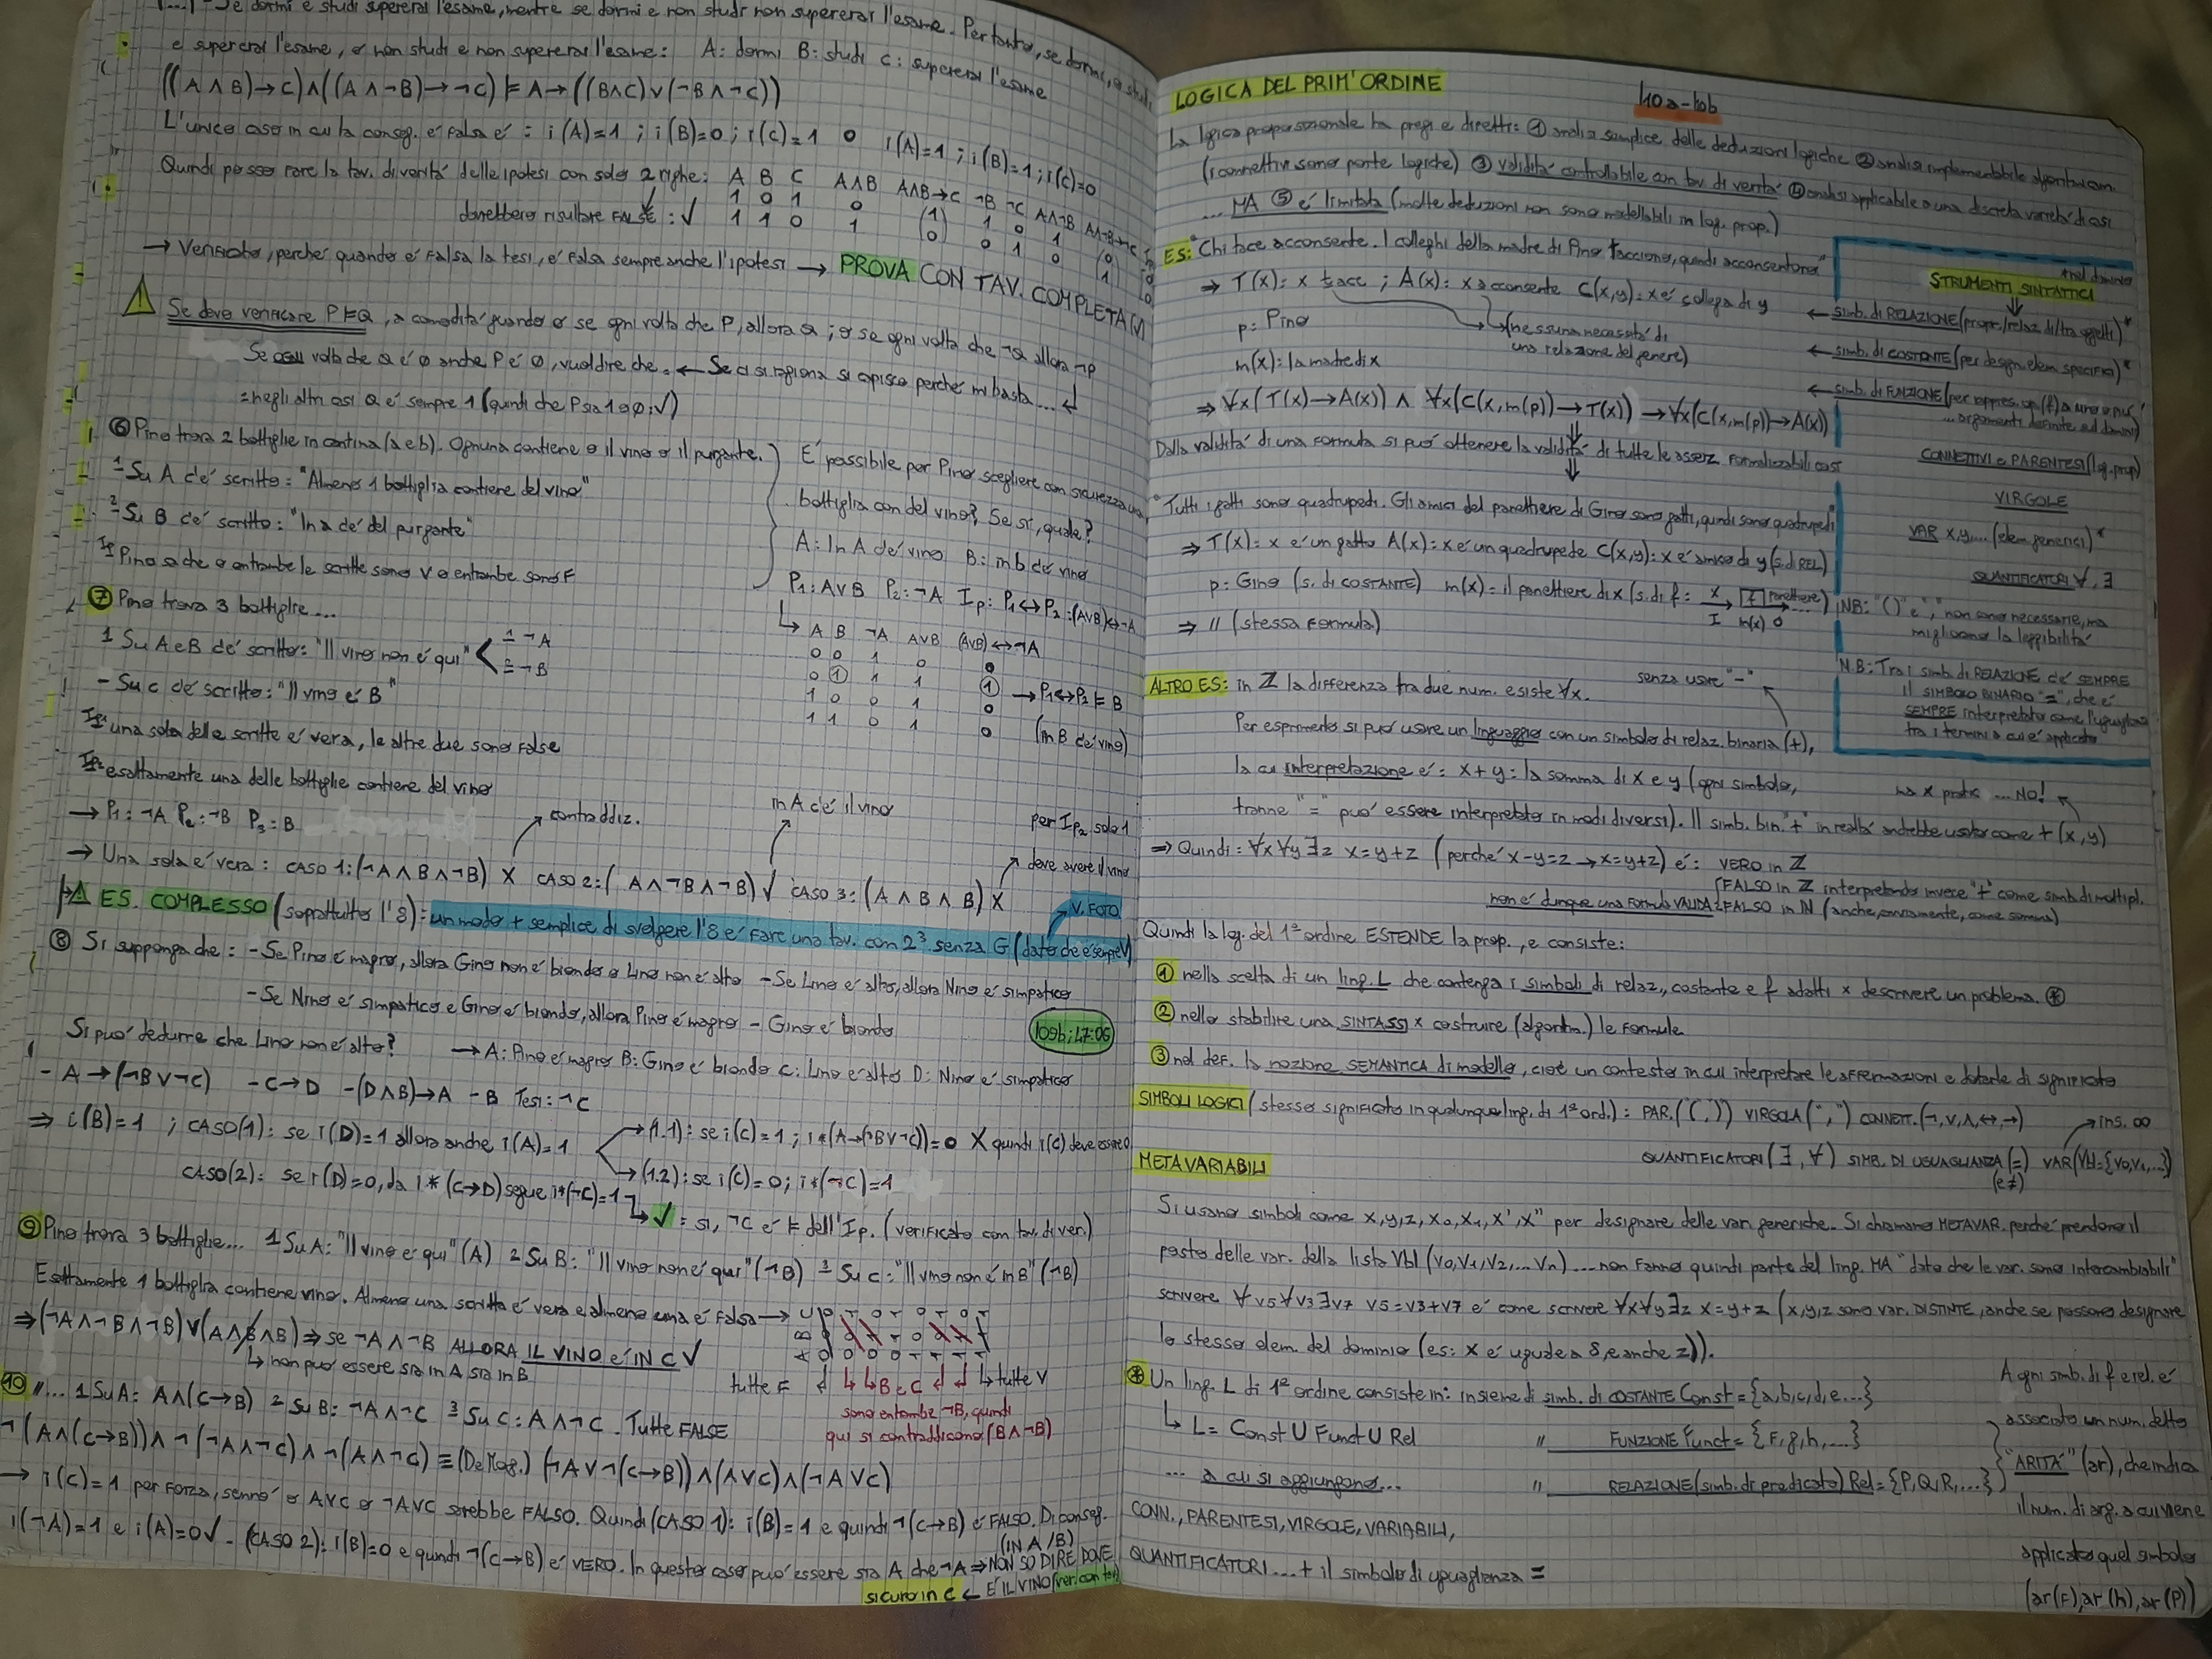 [...] - Se dormi e studi supererai l'esame, mentre se dormi e non studi non supererai l'esame. Pertanto, se dormi, o studi
e supererai l'esame, o non studi e non supererai l'esame: A: dormi B: studi C: supererai l'esame
((A∧B)→C)∧((A∧¬B)→¬C) ⊨ A→((B∧C)∨(¬B∧¬C))
L'unico caso in cui la conseg. é falsa é: i(A)=1; i(B)=0; i(C)=1 o i(A)=1; i(B)=1; i(C)=0
Quindi posso fare la tav. di veritá delle ipotesi con solo 2 righe: A B C A∧B A∧B→C ¬B ¬C A∧¬B A∧¬B→¬C
1 0 1 0 (1) 1 0 1 (0)
dovrebbero risultare FALSE: √ 1 1 0 1 (0) 0 1 0 (1)
→ Verificato, perché quando é falsa la tesi, é falsa sempre anche l'ipotesi → PROVA CON TAV. COMPLETA (√)
Se devo verificare P⊨Q, a comoditá guardo o se ogni volta che P, allora Q; o se ogni volta che ¬Q allora ¬P
Se ogni volta che Q é 0 anche P é 0, vuol dire che: ← Se ci si ragiona si capisce perché mi basta...
=negli altri casi Q é sempre 1 (quindi che P sia 1 o 0: √)
⑥ Pino trova 2 bottiglie in cantina (a e b). Ognuna contiene o il vino o il purgante.
1-Su A c'é scritto: "Almeno 1 bottiglia contiene del vino"
2-Su B c'é scritto: "In a c'é del purgante"
Ip Pino sa che o entrambe le scritte sono V o entrambe sono F
É possibile per Pino scegliere con sicurezza una
bottiglia con del vino? Se sí, quale?
A: In A c'é vino B: in b c'é vino
P1: A∨B P2: ¬A Ip: P1↔P2: (A∨B)↔¬A
A B ¬A A∨B (A∨B)↔¬A
0 0 1 0 0
0 1 1 1 1 → P1↔P2 ⊨ B
1 0 0 1 0
1 1 0 1 0 (in B c'é vino)
⑦ Pino trova 3 bottiglie...
1 Su A e B c'é scritto: "Il vino non é qui" < 1=¬A
2=¬B
- Su C c'é scritto: "Il vino é B"
Ip1 una sola delle scritte é vera, le altre due sono false
Ip2 esattamente una delle bottiglie contiene del vino
→ P1: ¬A P2: ¬B P3: B
contraddiz.
in A c'é il vino
per Ip2 solo 1
deve avere il vino
→ Una sola é vera: CASO 1: (¬A∧B∧¬B) X CASO 2: (A∧¬B∧¬B) √ CASO 3: (A∧B∧B) X
ES. COMPLESSO (soprattutto l'8): un modo + semplice di svolgere l'8 é fare una tav. con 2³ senza G (dato che é sempre V)
V. FOTO
⑧ Si supponga che: - Se Pino é magro, allora Gino non é biondo o Lino non é alto - Se Lino é alto, allora Nino é simpatico
- Se Nino é simpatico e Gino é biondo, allora Pino é magro - Gino é biondo
109b; 47:06
Si puo' dedurre che Lino non é alto? → A: Pino é magro B: Gino é biondo C: Lino é alto D: Nino é simpatico
- A→(¬B∨¬C) - C→D - (D∧B)→A - B Tesi: ¬C
⇒ i(B)=1; CASO(1): se i(D)=1 allora anche i(A)=1
(1.1): se i(C)=1; i*(A→(¬B∨¬C))=0 X quindi i(C) deve essere 0
(1.2): se i(C)=0; i*(¬C)=1
CASO(2): se i(D)=0, da i*(C→D) segue i*(¬C)=1
√ = sí, ¬C é ⊨ dell'Ip. (verificato con tav. di ver.)
⑨ Pino trova 3 bottiglie... 1 Su A: "Il vino é qui" (A) 2 Su B: "Il vino non é qui" (¬B) 3 Su C: "Il vino non é in B" (¬B)
Esattamente 1 bottiglia contiene vino. Almeno una scritta é vera e almeno una é falsa →
⇒ (¬A∧¬B∧¬B)∨(A∧B∧B) ⇒ se ¬A∧¬B ALLORA IL VINO é IN C √
non puo' essere sia in A sia in B
tutte F B e C tutte V
sono entrambe ¬B, quindi
qui si contraddicono (B∧¬B)
⑩ "... 1 Su A: A∧(C→B) 2 Su B: ¬A∧¬C 3 Su C: A∧¬C. Tutte FALSE
¬(A∧(C→B))∧¬(¬A∧¬C)∧¬(A∧¬C) ≡ (De Mog.) (¬A∨¬(C→B))∧(A∨C)∧(¬A∨C)
→ i(C)=1 per forza, sennó o A∨C o ¬A∨C sarebbe FALSO. Quindi (CASO 1): i(B)=1 e quindi ¬(C→B) é FALSO. Di conseg.
i(¬A)=1 e i(A)=0 √ - (CASO 2): i(B)=0 e quindi ¬(C→B) é VERO. In questo caso puo' essere sia A che ¬A ⇒ NON SO DIRE DOVE
(IN A/B)
sicuro in C ← É IL VINO (ver. con tav)
LOGICA DEL PRIM'ORDINE
110a-110b
La logica proposizionale ha pregi e difetti: ① analisi semplice delle deduzioni logiche ② analisi implementabile algoritmicam.
(i connettivi sono porte logiche) ③ validitá controllabile con tav. di veritá ④ analisi applicabile a una discreta varietá di casi
... MA ⑤ é limitata (molte deduzioni non sono modellabili in log. prop.)
ES: "Chi tace acconsente. I colleghi della madre di Pino tacciono, quindi acconsentono"
⇒ T(x): x tace; A(x): x acconsente C(x,y): x é collega di y
p: Pino
(nessuna necessitá di
una relazione del genere)
m(x): la madre di x
⇒ ∀x(T(x)→A(x)) ∧ ∀x(C(x,m(p))→T(x)) → ∀x(C(x,m(p))→A(x))
Dalla validitá di una formula si puo' ottenere la validitá di tutte le asserz. formalizzabili cosí
"Tutti i gatti sono quadrupedi. Gli amici del panettiere di Gino sono gatti, quindi sono quadrupedi"
⇒ T(x): x é un gatto A(x): x é un quadrupede C(x,y): x é amico di y (s. di REL)
p: Gino (s. di COSTANTE) m(x) = il panettiere di x (s. di f: x → f panettiere → ...)
I m(x) O
⇒ " (stessa formula)
*nel dominio
STRUMENTI SINTATTICI
← simb. di RELAZIONE (propr./relaz. di/tra oggetti)*
← simb. di COSTANTE (per design. elem. specifici)*
← simb. di FUNZIONE (per rappres. op. (f) a uno o piú
... argomenti definite sul dominio)
CONNETTIVI e PARENTESI (log. prop)
VIRGOLE
VAR x,y,... (elem. generici)*
QUANTIFICATORI ∀, ∃
NB: "()" e "," non sono necessarie, ma
migliorano la leggibilitá
N.B: Tra i simb. di RELAZIONE c'é SEMPRE
il SIMBOLO BINARIO "=", che é
SEMPRE interpretato come l'uguaglianza
tra i termini a cui é applicato
ALTRO ES: in ℤ la differenza tra due num. esiste ∀x.
senza usare "-"
Per esprimerlo si puo' usare un linguaggio con un simbolo di relaz. binaria (+),
la cui interpretazione é: x+y: la somma di x e y (ogni simbolo,
tranne "=" puo' essere interpretato in modi diversi). Il simb. bin. "+" in realtá andrebbe usato come +(x,y)
ma x pratic. ... No!
⇒ Quindi: ∀x∀y∃z x=y+z (perché x-y=z → x=y+z) é: VERO in ℤ
FALSO in ℤ interpretando invece "+" come simb. di multipl.
non é dunque una formula VALIDA FALSO in ℕ (anche, ovviamente, come somma)
Quindi la log. del 1° ordine ESTENDE la prop., e consiste:
① nella scelta di un ling. L che contenga i simboli di relaz., costante e f adatti x descrivere un problema. ⊛
② nello stabilire una SINTASSI x costruire (algoritm.) le formule
③ nel def. la nozione SEMANTICA di modello, cioé un contesto in cui interpretare le affermazioni e dotarle di significato
SIMBOLI LOGICI (stesso significato in qualunque ling. di 1° ord.): PAR. ("(", ")") VIRGOLA (",") CONNETT. (¬,∨,∧,↔,→)
ins. ∞
QUANTIFICATORI (∃, ∀) SIMB. DI UGUAGLIANZA (=) VAR (Vbl={v0,v1,...})
(e ≠)
METAVARIABILI
Si usano simboli come x,y,z, x0, x1, x', x'' per designare delle var. generiche. Si chiamano METAVAR. perché prendono il
posto delle var. della lista Vbl (v0,v1,v2,... vn)... non fanno quindi parte del ling. MA "dato che le var. sono intercambiabili"
scrivere ∀v5∀v3∃v7 v5=v3+v7 é come scrivere ∀x∀y∃z x=y+z (x,y,z sono var. DISTINTE, anche se possono designare
lo stesso elem. del dominio (es: x é uguale a 8, e anche z)).
⊛ Un ling. L di 1° ordine consiste in: insieme di simb. di COSTANTE Const={a,b,c,d,e...}
↳ L= Const U Funct U Rel " FUNZIONE Funct={f,g,h,...}
... a cui si aggiungono... " RELAZIONE (simb. di predicato) Rel={P,Q,R,...}
CONN., PARENTESI, VIRGOLE, VARIABILI,
QUANTIFICATORI...+ il simbolo di uguaglianza =
A ogni simb. di f e rel. é
associato un num. detto
"ARITÁ" (ar), che indica
il num. di arg. a cui viene
applicato quel simbolo
(ar(f), ar(h), ar(P))